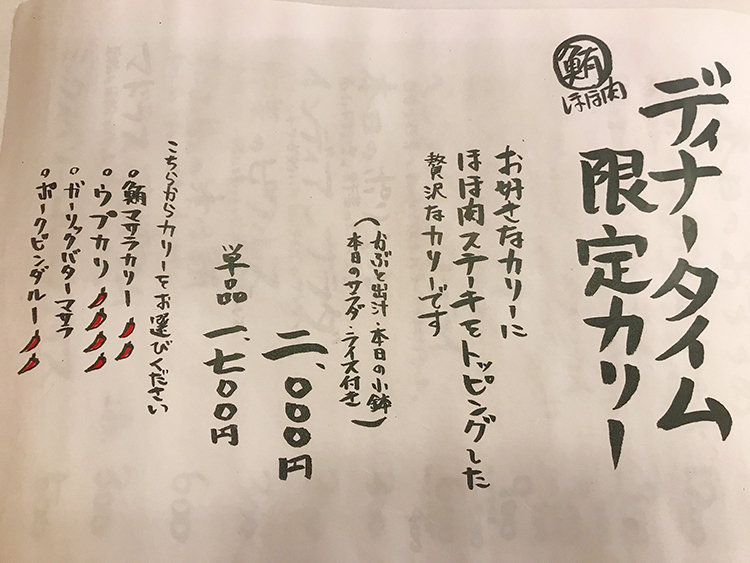 ディナータイム
限定カリー
鮪
ほほ肉
お好きなカリーに
ほほ肉ステーキをトッピングした
贅沢なカリーです
(かぶと出汁・本日の小鉢
本日のサラダ・ライス付き)
二、〇〇〇円
単品 一、七〇〇円
こちらからカリーをお選びください
○鮪マサラカリー
○ウプカリ
○ガーリックバターマサラ
○ポークビンダルー